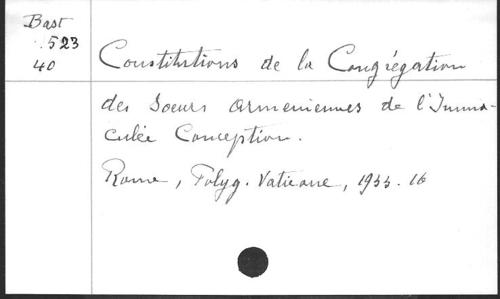 Bast
523
40
Constitutions de la Congrégation
des Soeurs Armeniennes de l'Imma-
culée Conception.
Rome, Polyg. Vaticane, 1933. 16